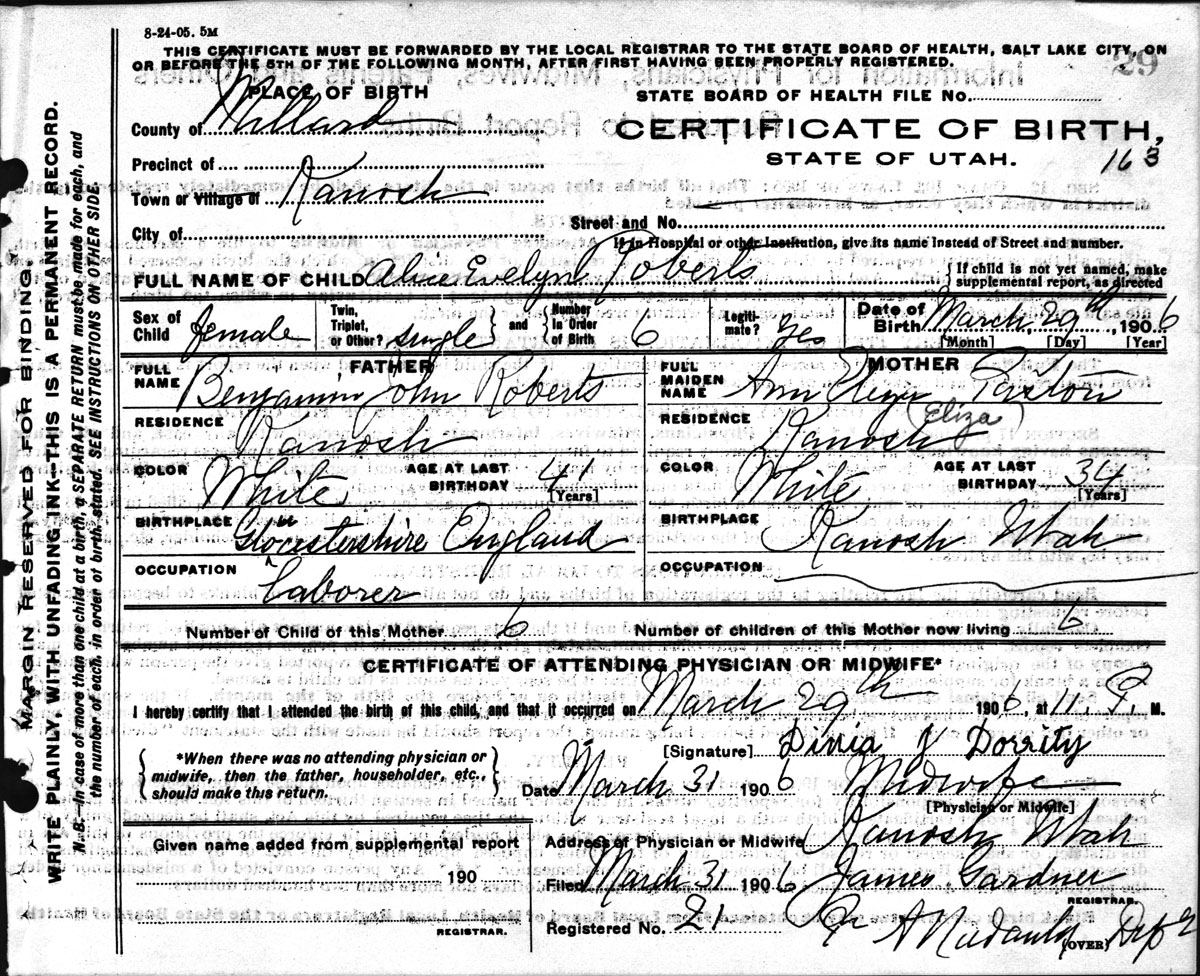 8-24-05. 5M
THIS CERTIFICATE MUST BE FORWARDED BY THE LOCAL REGISTRAR TO THE STATE BOARD OF HEALTH, SALT LAKE CITY, ON
OR BEFORE THE 5TH OF THE FOLLOWING MONTH, AFTER FIRST HAVING BEEN PROPERLY REGISTERED.
29
PLACE OF BIRTH
STATE BOARD OF HEALTH FILE No.
County of Millard
CERTIFICATE OF BIRTH,
STATE OF UTAH. 163
Precinct of
Town or Village of Kanosh
Street and No.
City of
If in Hospital or other Institution, give its name instead of Street and number.
FULL NAME OF CHILD Alice Evelyn Roberts
If child is not yet named, make
supplemental report, as directed
Sex of Child female Twin, Triplet, or Other? single and Number In Order of Birth 6 Legiti-mate? yes Date of Birth March 29th, 1906
[Month] [Day] [Year]
FATHER
FULL NAME Benjamin John Roberts
RESIDENCE Kanosh
COLOR White AGE AT LAST BIRTHDAY 41 [Years]
BIRTHPLACE Gloucestershire England
OCCUPATION Laborer
MOTHER
FULL MAIDEN NAME Ann Paxton
(Eliza)
RESIDENCE Kanosh
COLOR White AGE AT LAST BIRTHDAY 34 [Years]
BIRTHPLACE Kanosh Utah
OCCUPATION
Number of Child of this Mother 6 Number of children of this Mother now living 6
CERTIFICATE OF ATTENDING PHYSICIAN OR MIDWIFE*
I hereby certify that I attended the birth of this child, and that it occurred on March 29th 1906, at 11. P. M.
*When there was no attending physician or
midwife, then the father, householder, etc.,
should make this return.
[Signature] Dorrity
Date March 31 1906 Midwife
[Physician or Midwife]
Address of Physician or Midwife Kanosh Utah
Given name added from supplemental report
190
REGISTRAR.
Filed March 31 1906 James Gardner
REGISTRAR.
Registered No. 21
(OVER)
MARGIN RESERVED FOR BINDING.
WRITE PLAINLY, WITH UNFADING INK—THIS IS A PERMANENT RECORD.
N. B.—In case of more than one child at a birth, a SEPARATE RETURN must be made for each, and
the number of each, in order of birth, stated. SEE INSTRUCTIONS ON OTHER SIDE.